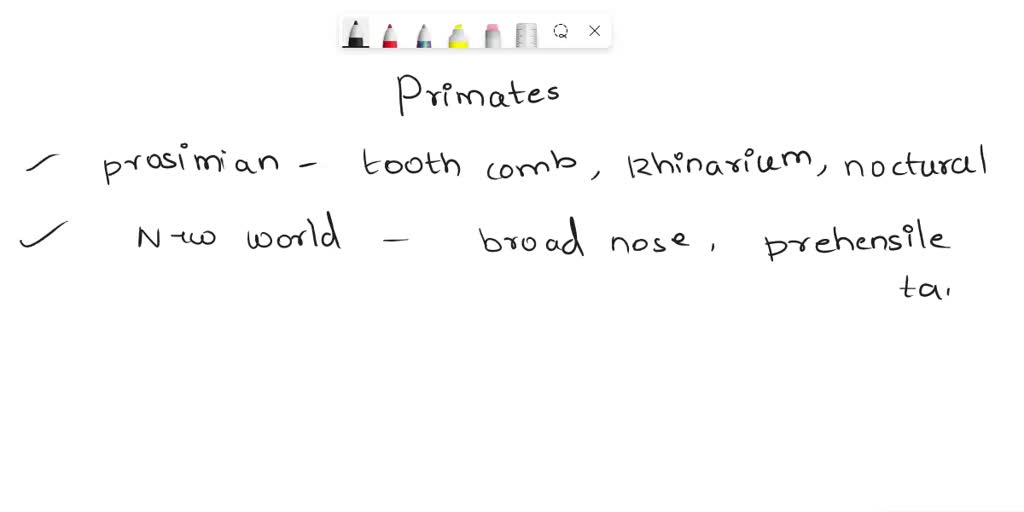 Primates
prosimian - tooth comb, Rhinarium, noctural
New world - broad nose, prehensile
ta